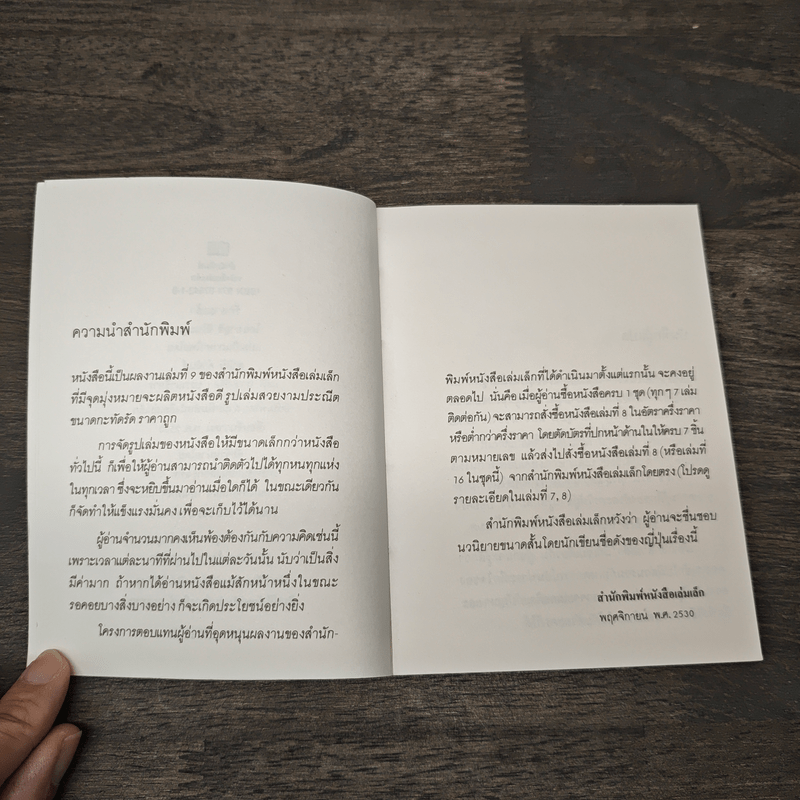 ความนำสำนักพิมพ์
หนังสือนี้เป็นผลงานเล่มที่ 9 ของสำนักพิมพ์หนังสือเล่มเล็ก
ที่มีจุดมุ่งหมายจะผลิตหนังสือดี รูปเล่มสวยงามประณีต
ขนาดกะทัดรัด ราคาถูก
การจัดรูปเล่มของหนังสือให้มีขนาดเล็กกว่าหนังสือ
ทั่วไปนี้ ก็เพื่อให้ผู้อ่านสามารถนำติดตัวไปได้ทุกหนทุกแห่ง
ในทุกเวลา ซึ่งจะหยิบขึ้นมาอ่านเมื่อใดก็ได้ ในขณะเดียวกัน
ก็จัดทำให้แข็งแรงมั่นคง เพื่อจะเก็บไว้ได้นาน
ผู้อ่านจำนวนมากคงเห็นพ้องต้องกันกับความคิดเช่นนี้
เพราะเวลาแต่ละนาทีที่ผ่านไปในแต่ละวันนั้น นับว่าเป็นสิ่ง
มีค่ามาก ถ้าหากได้อ่านหนังสือแม้สักหน้าหนึ่งในขณะ
รอคอยบางสิ่งบางอย่าง ก็จะเกิดประโยชน์อย่างยิ่ง
โครงการตอบแทนผู้อ่านที่อุดหนุนผลงานของสำนัก-
พิมพ์หนังสือเล่มเล็กที่ได้ดำเนินมาตั้งแต่แรกนั้น จะคงอยู่
ตลอดไป นั่นคือ เมื่อผู้อ่านซื้อหนังสือครบ 1 ชุด (ทุก ๆ 7 เล่ม
ติดต่อกัน) จะสามารถสั่งซื้อหนังสือเล่มที่ 8 ในอัตราครึ่งราคา
หรือต่ำกว่าครึ่งราคา โดยตัดบัตรที่ปกหน้าด้านในให้ครบ 7 ชิ้น
ตามหมายเลข แล้วส่งไปสั่งซื้อเล่มที่ 8 (หรือเล่มที่
16 ในชุดนี้) จากสำนักพิมพ์หนังสือเล่มเล็กโดยตรง (โปรดดู
รายละเอียดในเล่มที่ 7, 8)
สำนักพิมพ์หนังสือเล่มเล็กหวังว่า ผู้อ่านจะชื่นชอบ
นวนิยายขนาดสั้นโดยนักเขียนชื่อดังของญี่ปุ่นเรื่องนี้
สำนักพิมพ์หนังสือเล่มเล็ก
พฤศจิกายน พ.ศ. 2530